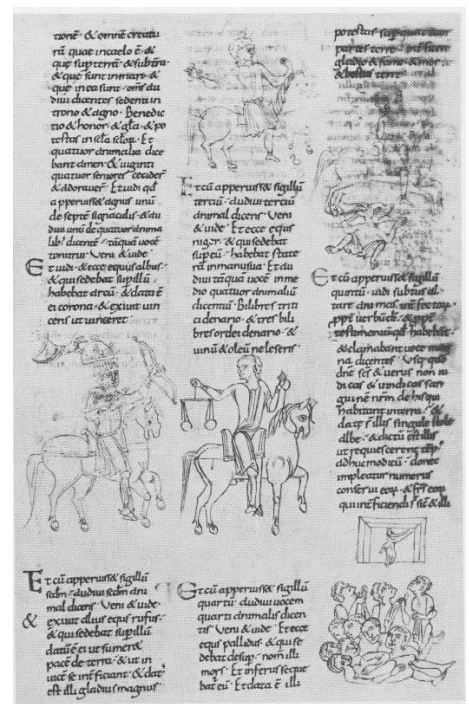 tione · & omnē creatu
rā quae in caelo ē · &
que sup terrā · & sub terra ·
& que sunt in mari · &
que in ea sunt · oms au
diui dicentes sedenti in
trono & agno · Benedic
tio & honor · & gla · & po
testas in scla sclor · Et
quattuor animalia dice
bant amen · & uiginti
quattuor seniores cecider
& adorauer · Et uidi qd
apperuisset agnus unū
de septē signaculis · & au
diui unū de quatuor anima
lib · dicentē · tāquā uocē
tonitrui · Veni & uide ·
Et uidi · & ecce equus albus ·
& qui sedebat sup illū
habebat arcū · & data ē
ei corona · & exiuit uin
cens ut uinceret
Et cū apperuisset sigillū
scdm · audiui scdm ani
mal dicens · Veni & uide ·
& exiuit alius equs rufus ·
& qui sedebat sup illū
datū ē ei ut sumeret
pacē de terra · & ut in
uicē se intficiant · & dat
est illi gladius magnus
Et cū apperuisset sigillū
terciū · audiui terciū
animal dicens · Veni
& uide · Et ecce equs
niger · & qui sedebat
sup eū · habebat state
rā in manu sua · Et au
diui tāquā uocē in me
dio quatuor animaliū
dicentiū · Bilibres triti
ci denario · & tres bili
bres ordei denario · &
uinū & oleū ne leseris
Et cū apperuisset sigillū
quartū · audiui uocem
quarti animalis dicen
tis · Veni & uide · Et ecce
equs pallidus · & qui se
debat desup · nom illi
mors · Et inferus seque
bat eū · Et data ē illi
potestas sup quattuor
partes terre · intficere
gladio & fame · & mor
& bestiis terre
Et cū apperuisset sigillū
quintū · uidi subtus al
tare animas intfectorū
ppt uerbū di · & ppt
testimoniū qd habebat ·
& clamabant uoce mag
na dicentes · Vsq quo
dne scs & uerus non iu
dicas & uindicas san
guinē nrm de his qui
habitant in terra · &
date s illis singule stole
albe · & dictū est illis
ut requiescerent temp
adhuc modicū · donec
impleatur numerus
conseruī eor · & frs eor
qui intficiendi s sic & illi